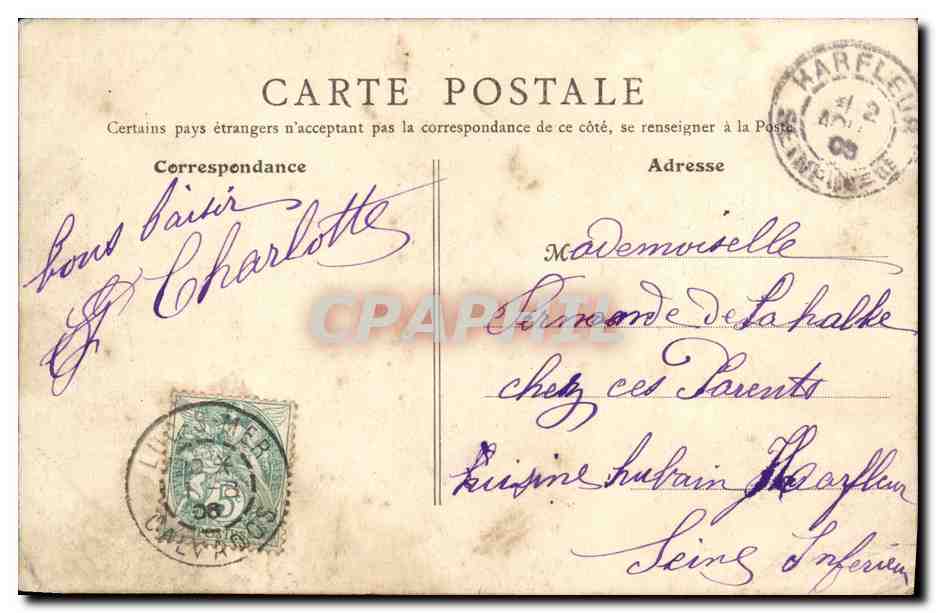 CARTE POSTALE
Certains pays étrangers n'acceptent pas la correspondance de ce côté, se renseigner à la Poste
Correspondance
Adresse
HARFLEUR
SEINE-INFRE
2
05
bons baisir
Charlotte
Mademoiselle
Fernande de Lahalle
chez ces Parents
husine hubain Harfleur
Seine Inférieu
CPAPHIL
S MER
CALVADOS